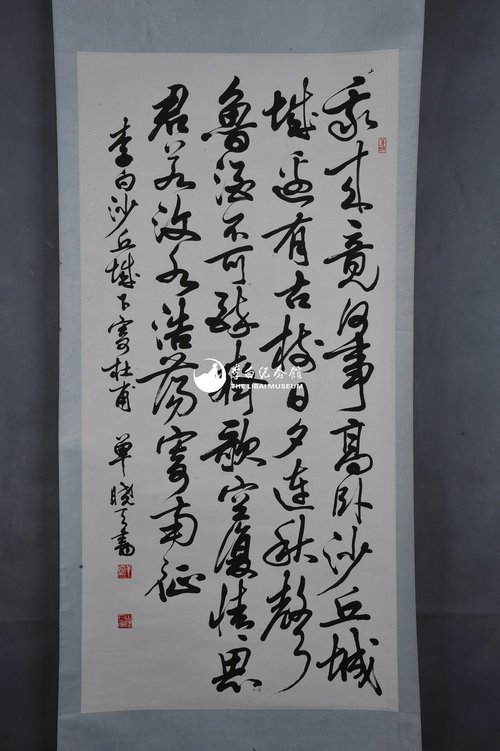 我来竟何事高卧沙丘城
城邊有古樹日夕連秋聲
魯酒不可醉齊歌空復情思
君若汶水浩蕩寄南征
李白沙丘城下寄杜甫 单曉天書
李白纪念馆
THE LIBAI MUSEUM